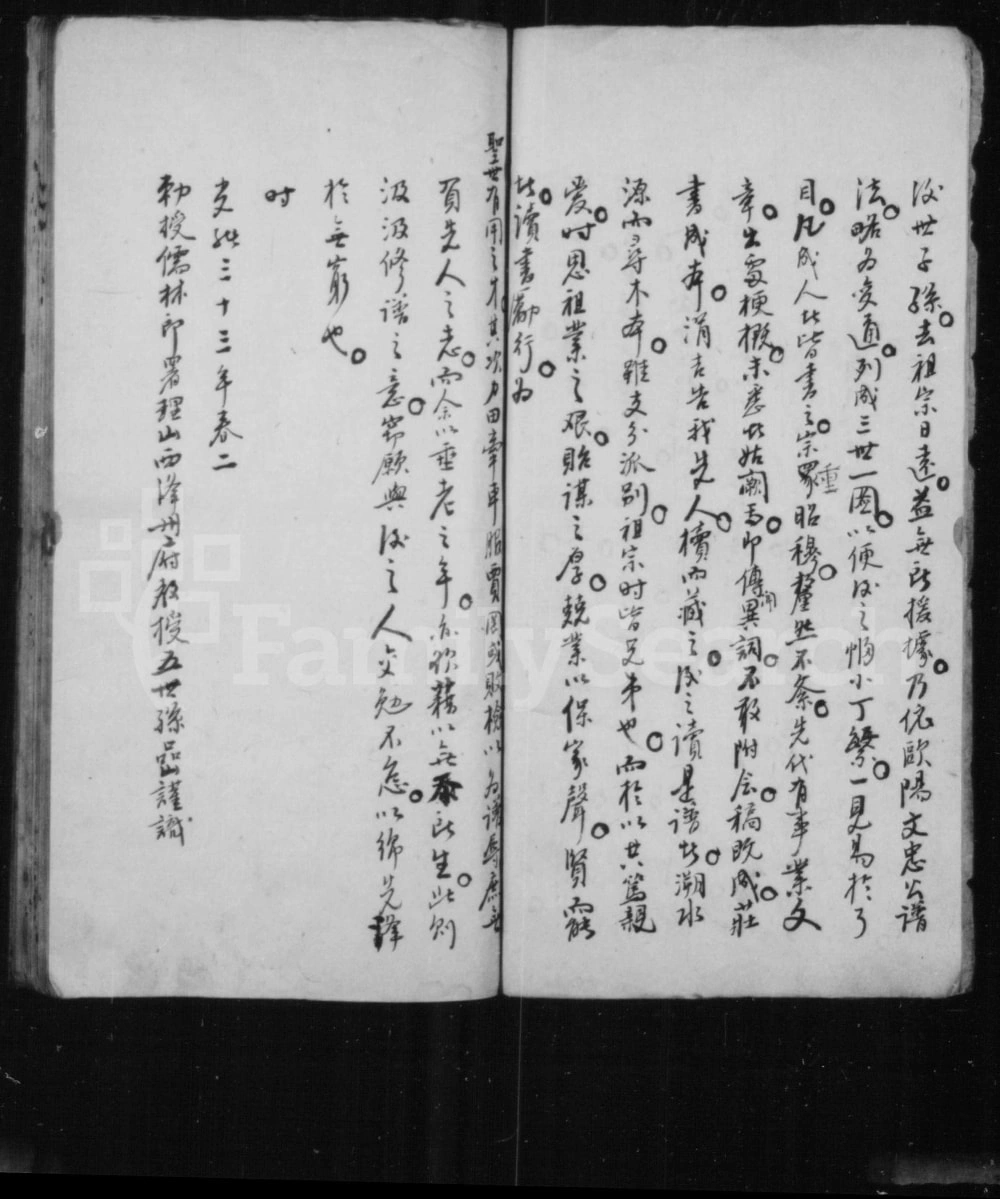 後世子孫去祖宗日遠益無所援據乃依歐陽文忠公譜
法略為變通列成三世一圖以便後之
一見易於了
目凡成人者皆書之宗
重
昭穆釐然不紊先代有事業文
章出處梗概未悉者姑闕焉即傳
聞
異詞不敢附會稿既成莊
書成本涓吉告我先人櫝而藏之後之讀是譜者溯水
源而尋木本雖支分派別祖宗時皆兄弟也而於以共篤親
愛時思祖業之艱貽謀之厚兢業以保家聲賢而能
者讀書勵行為
聖世有用之才其次力田牽車服賈罔或敗檢以為譜辱庶無
貽先人之恙而余以垂老之年亦欲藉以無忝所生此則
汲汲修譜之意竊願與後之人交勉不怠以綿先澤
於無窮也
時
光緒三十三年春二
勅授儒林郎署理山西澤州府教授五世孫品山謹識
FamilySearch